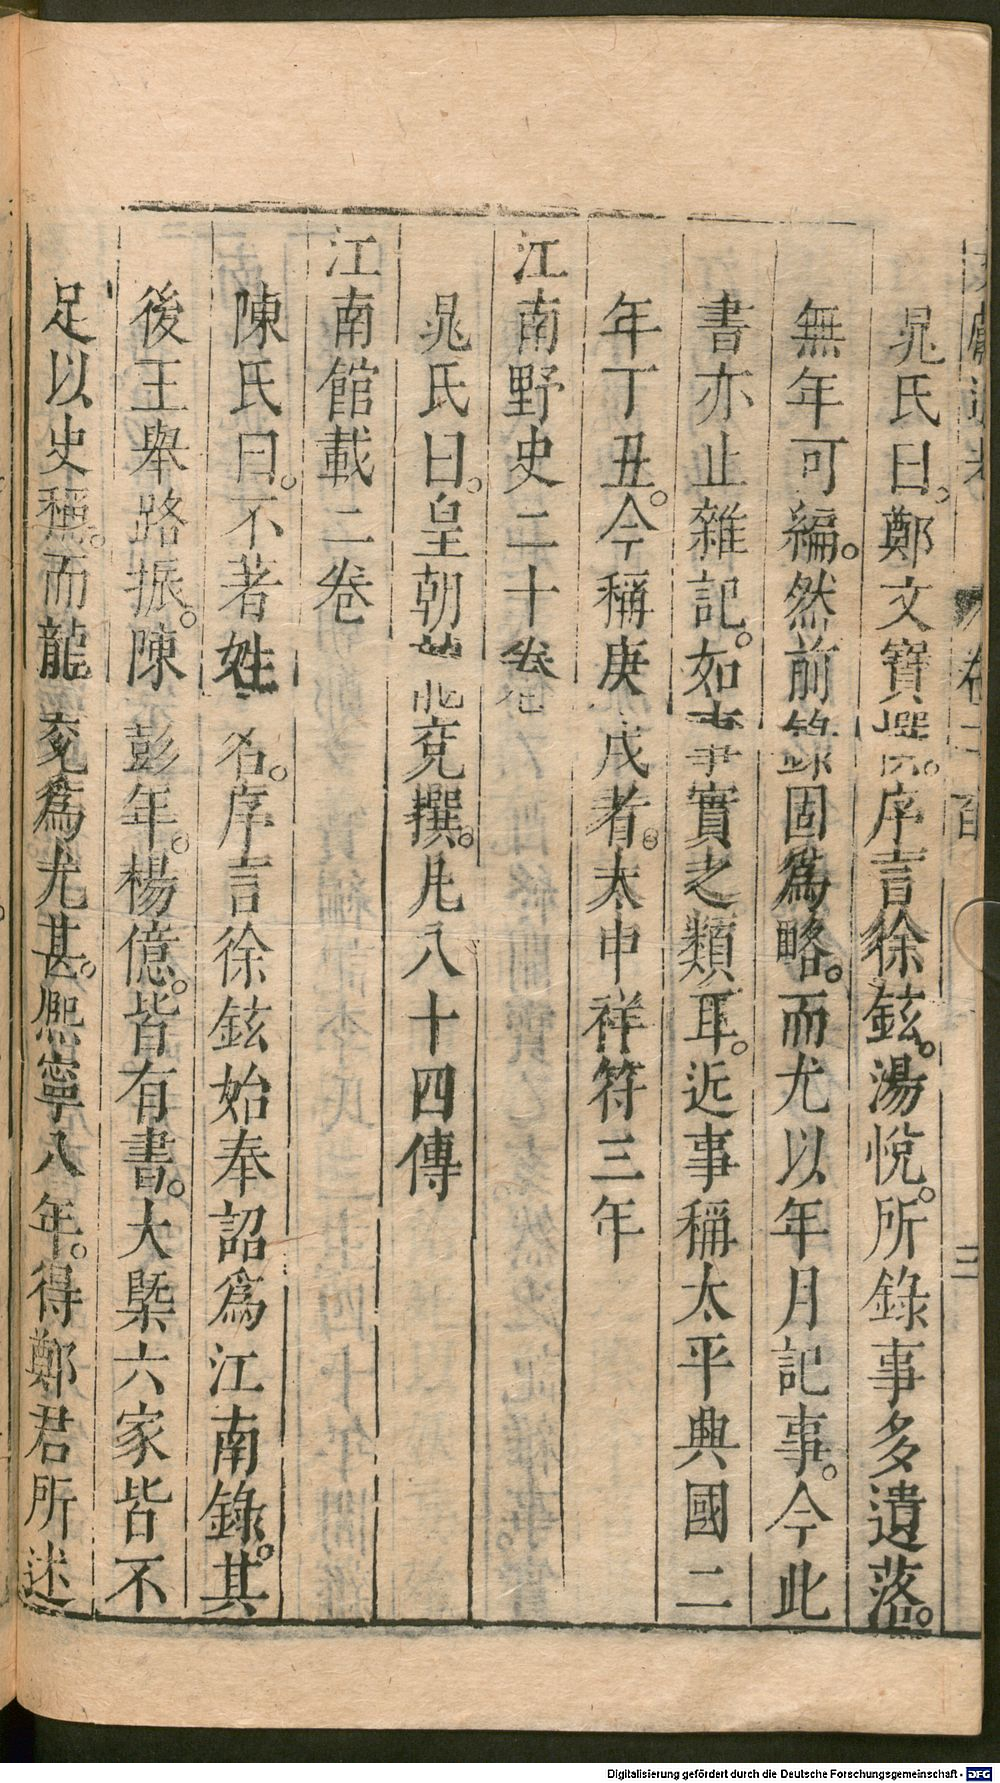 晁氏曰。鄭文寶撰。序言徐鉉。湯悅。所錄事多遺落。
無年可編。然前錄固爲略。而尤以年月記事。今此
書亦止雜記。如事實之類耳。近事稱太平興國二
年丁丑。今稱庚戌者。太中祥符三年
江南野史二十卷
晁氏曰。皇朝龍兗撰。凡八十四傳
江南館載二卷
陳氏曰。不著姓名。序言徐鉉始奉詔爲江南錄。其
後王舉路振。陳彭年。楊億。皆有書。大槩六家皆不
足以史稱。而龍兗爲尤甚。熙寧八年。得鄭君所述
三
Digitalisierung gefördert durch die Deutsche Forschungsgemeinschaft - DFG